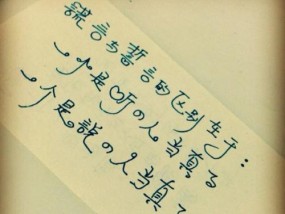 謊言与誓言的区别在于：
一个是听の人当真る
一个是說の人当真る